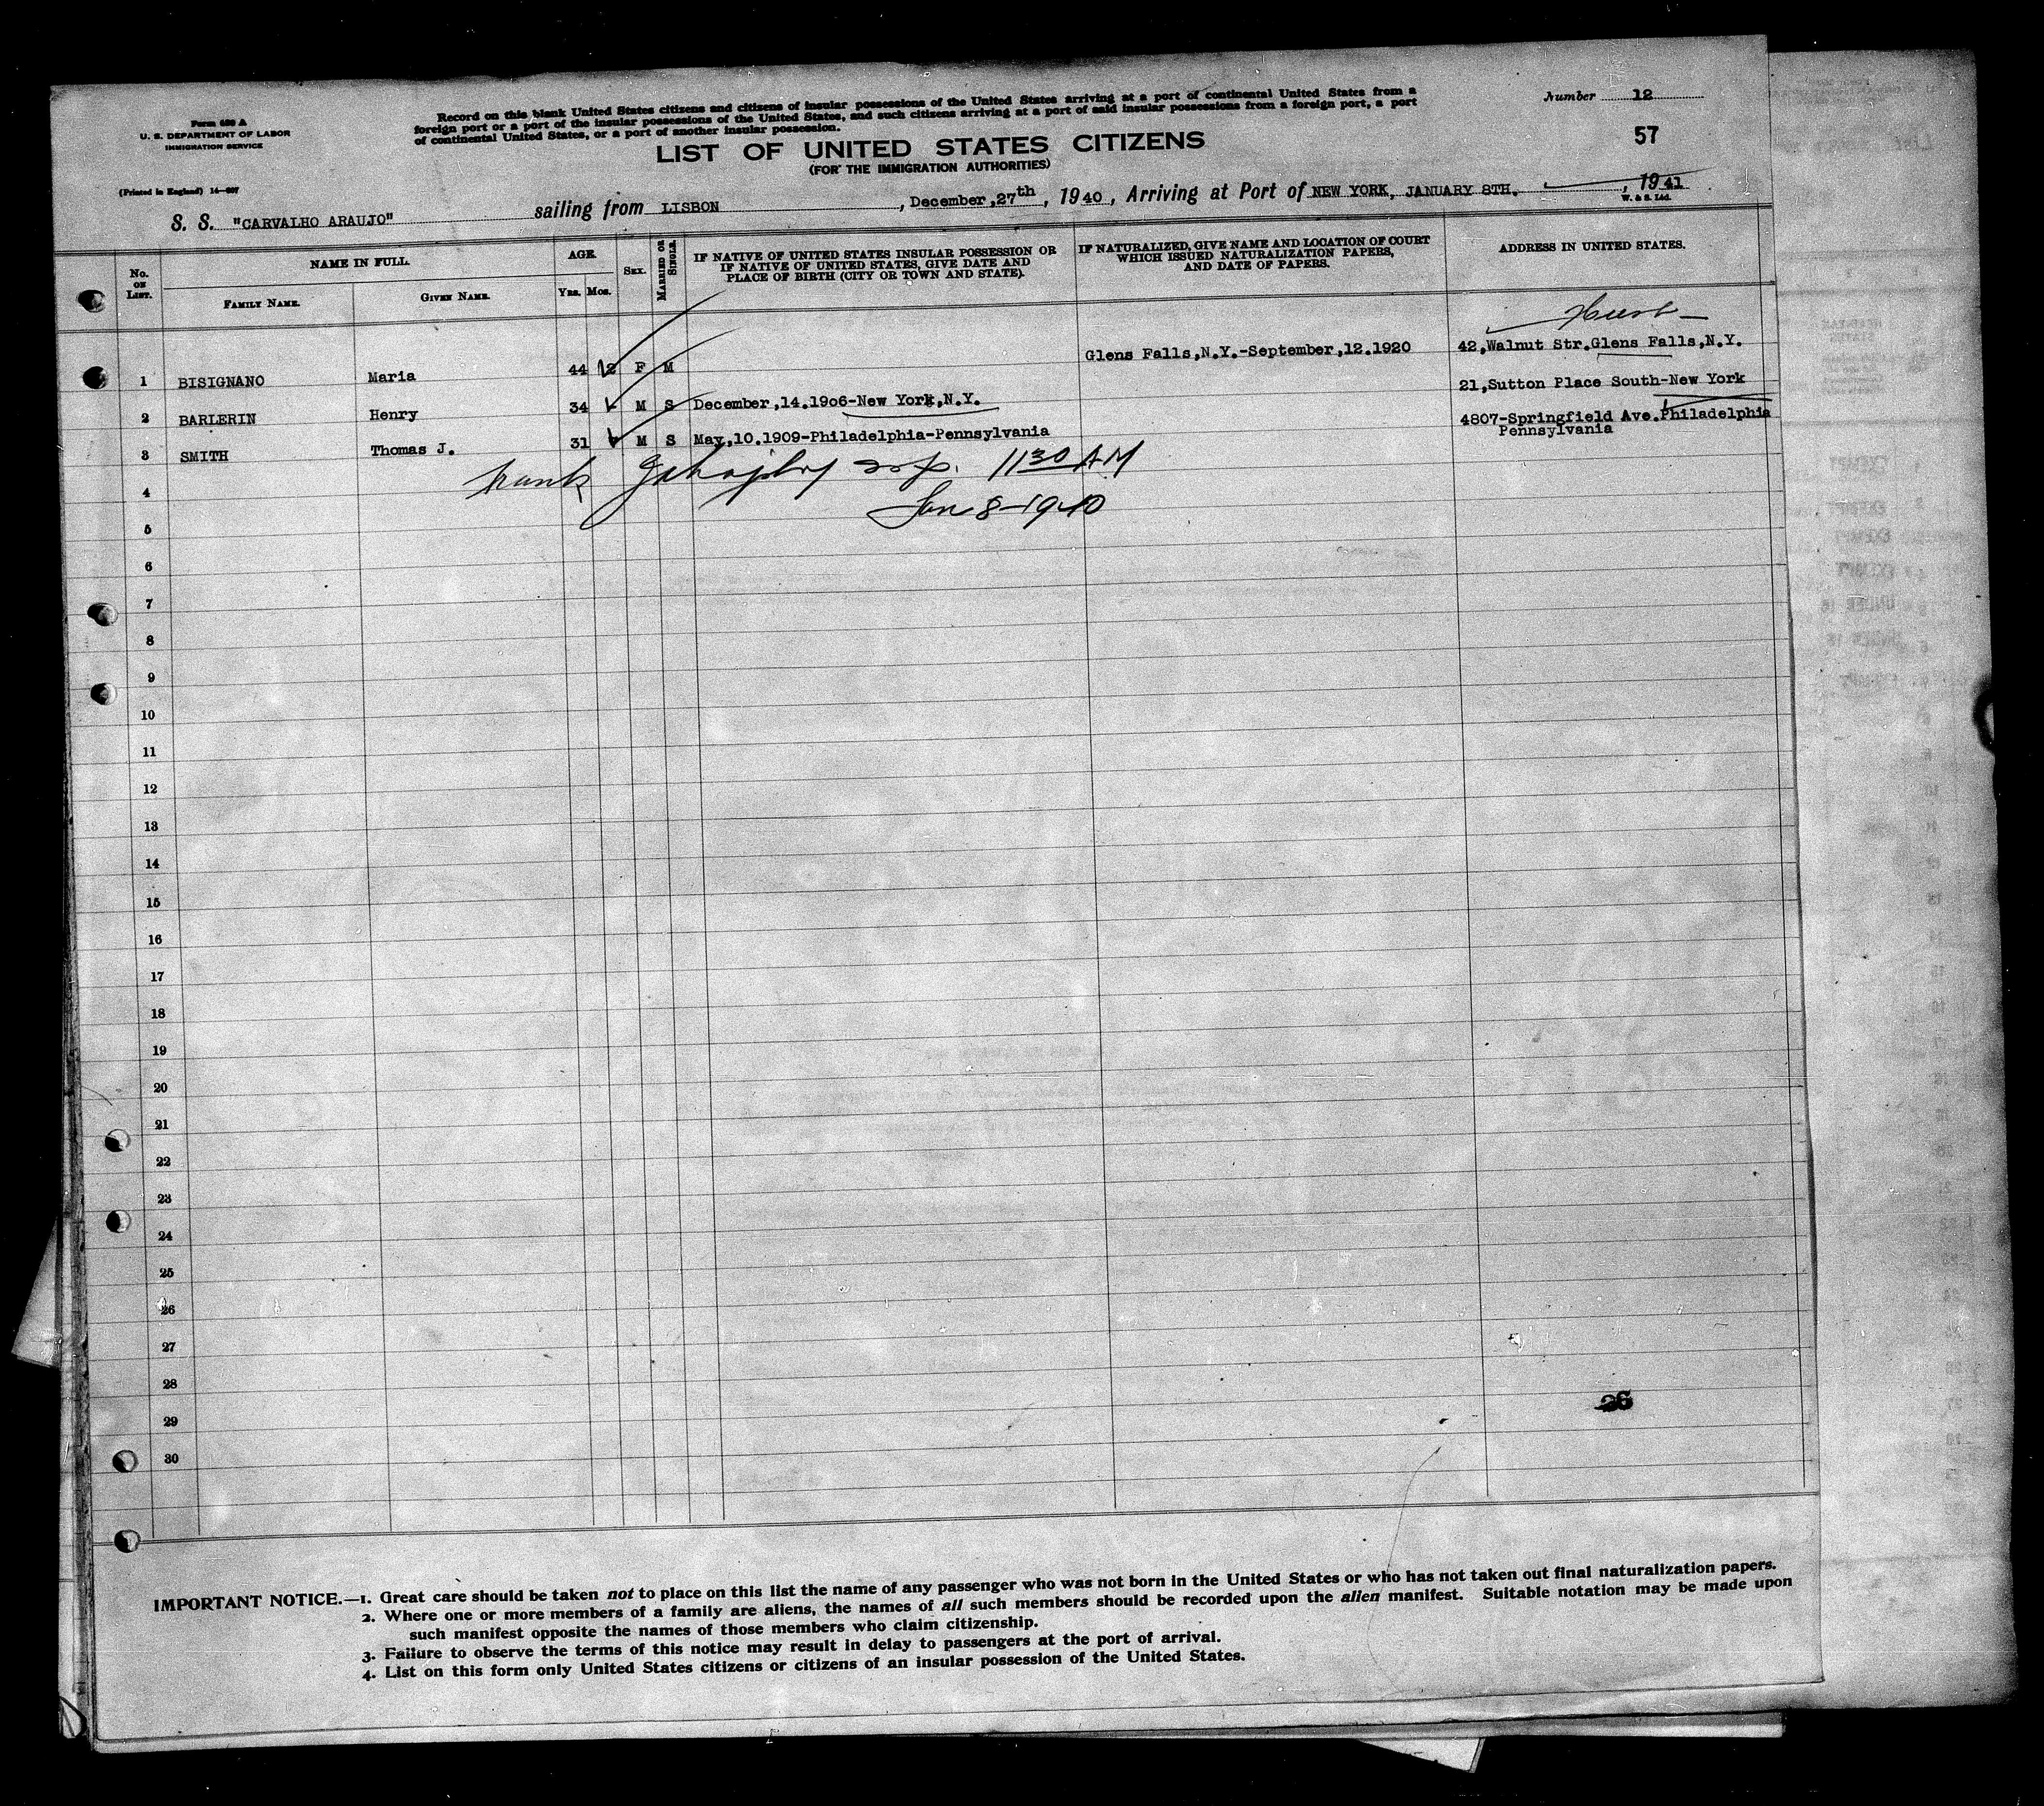 Form 630 A
U. S. DEPARTMENT OF LABOR
IMMIGRATION SERVICE
(Printed in England) 14—607
Record on this blank United States citizens and citizens of insular possessions of the United States arriving at a port of continental United States from a
foreign port or a port of the insular possessions of the United States, and such citizens arriving at a port of said insular possessions from a foreign port, a port
of continental United States, or a port of another insular possession.
Number 12
57
LIST OF UNITED STATES CITIZENS
(FOR THE IMMIGRATION AUTHORITIES)
S. S. "CARVALHO ARAUJO" sailing from LISBON, December, 27th, 1940, Arriving at Port of NEW YORK, JANUARY 8TH., 1941
W. & S. Ltd.
No. ON LIST.
NAME IN FULL.
FAMILY NAME.
GIVEN NAME.
AGE
YRS. MOS.
SEX.
MARRIED OR SINGLE.
IF NATIVE OF UNITED STATES INSULAR POSSESSION OR
IF NATIVE OF UNITED STATES, GIVE DATE AND
PLACE OF BIRTH (CITY OR TOWN AND STATE).
IF NATURALIZED, GIVE NAME AND LOCATION OF COURT
WHICH ISSUED NATURALIZATION PAPERS,
AND DATE OF PAPERS.
ADDRESS IN UNITED STATES.
1 BISIGNANO Maria 44 F M Glens Falls,N.Y.-September,12.1920 42,Walnut Str.Glens Falls,N.Y.
2 BARLERIN Henry 34 M S December,14.1906-New York,N.Y. 21,Sutton Place South-New York
3 SMITH Thomas J. 31 M S May,10.1909-Philadelphia-Pennsylvania 4807-Springfield Ave.Philadelphia
Pennsylvania
4
11 30 AM
Jan 8-1940
5
6
7
8
9
10
11
12
13
14
15
16
17
18
19
20
21
22
23
24
25
26
27
28
29
30
26
IMPORTANT NOTICE.—1. Great care should be taken not to place on this list the name of any passenger who was not born in the United States or who has not taken out final naturalization papers.
2. Where one or more members of a family are aliens, the names of all such members should be recorded upon the alien manifest. Suitable notation may be made upon
such manifest opposite the names of those members who claim citizenship.
3. Failure to observe the terms of this notice may result in delay to passengers at the port of arrival.
4. List on this form only United States citizens or citizens of an insular possession of the United States.